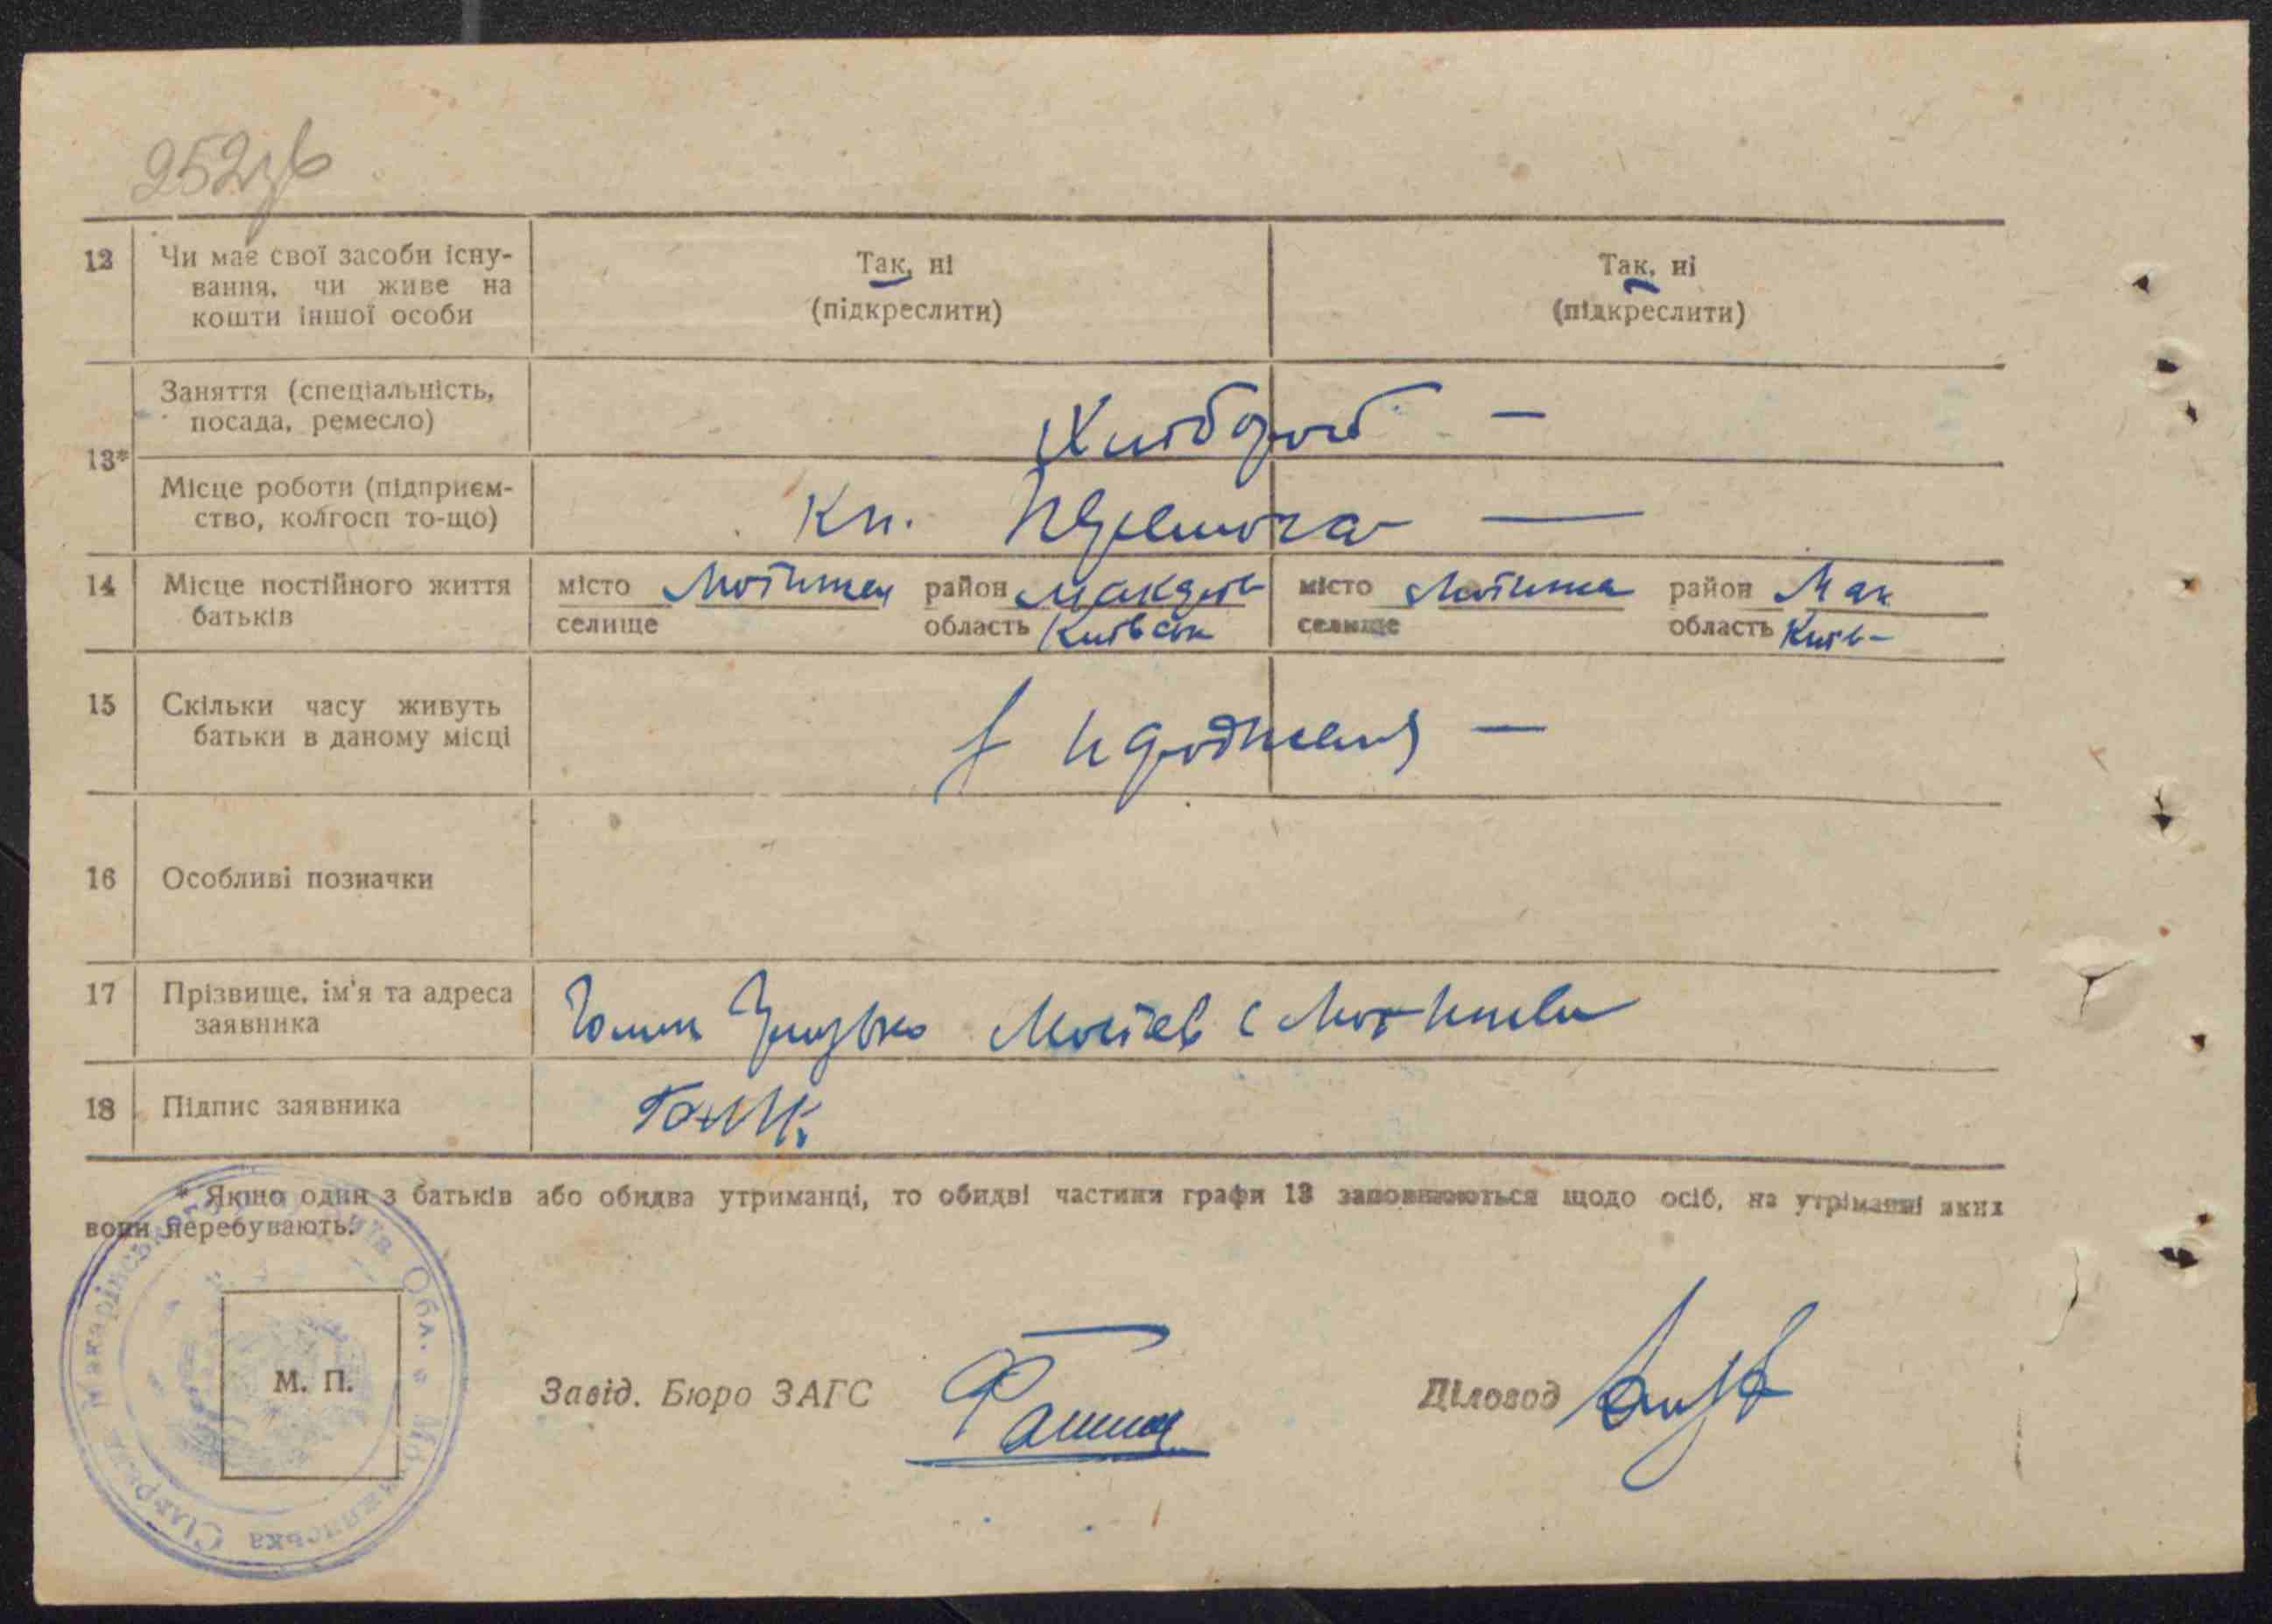 252зв
12 Чи має свої засоби існу- Так, ні Так, ні
вання, чи живе на (підкреслити) (підкреслити)
кошти іншої особи
Заняття (спеціальність, Хлібороб —
посада, ремесло)
13*
Місце роботи (підприєм- Кп. —
ство, колгосп то-що)
14 Місце постійного життя місто Мотижен район Макарів місто район Мак
батьків селище область Київськ селище область Київ-
15 Скільки часу живуть з народження —
батьки в даному місці
16 Особливі позначки
17 Прізвище, ім'я та адреса
заявника
18 Підпис заявника
* Якщо один з батьків або обидва утриманці, то обидві частини графи 13 заповнюються щодо осіб, на утріманні яких
вони перебувають.
М. П.
Завід. Бюро ЗАГС Діловод